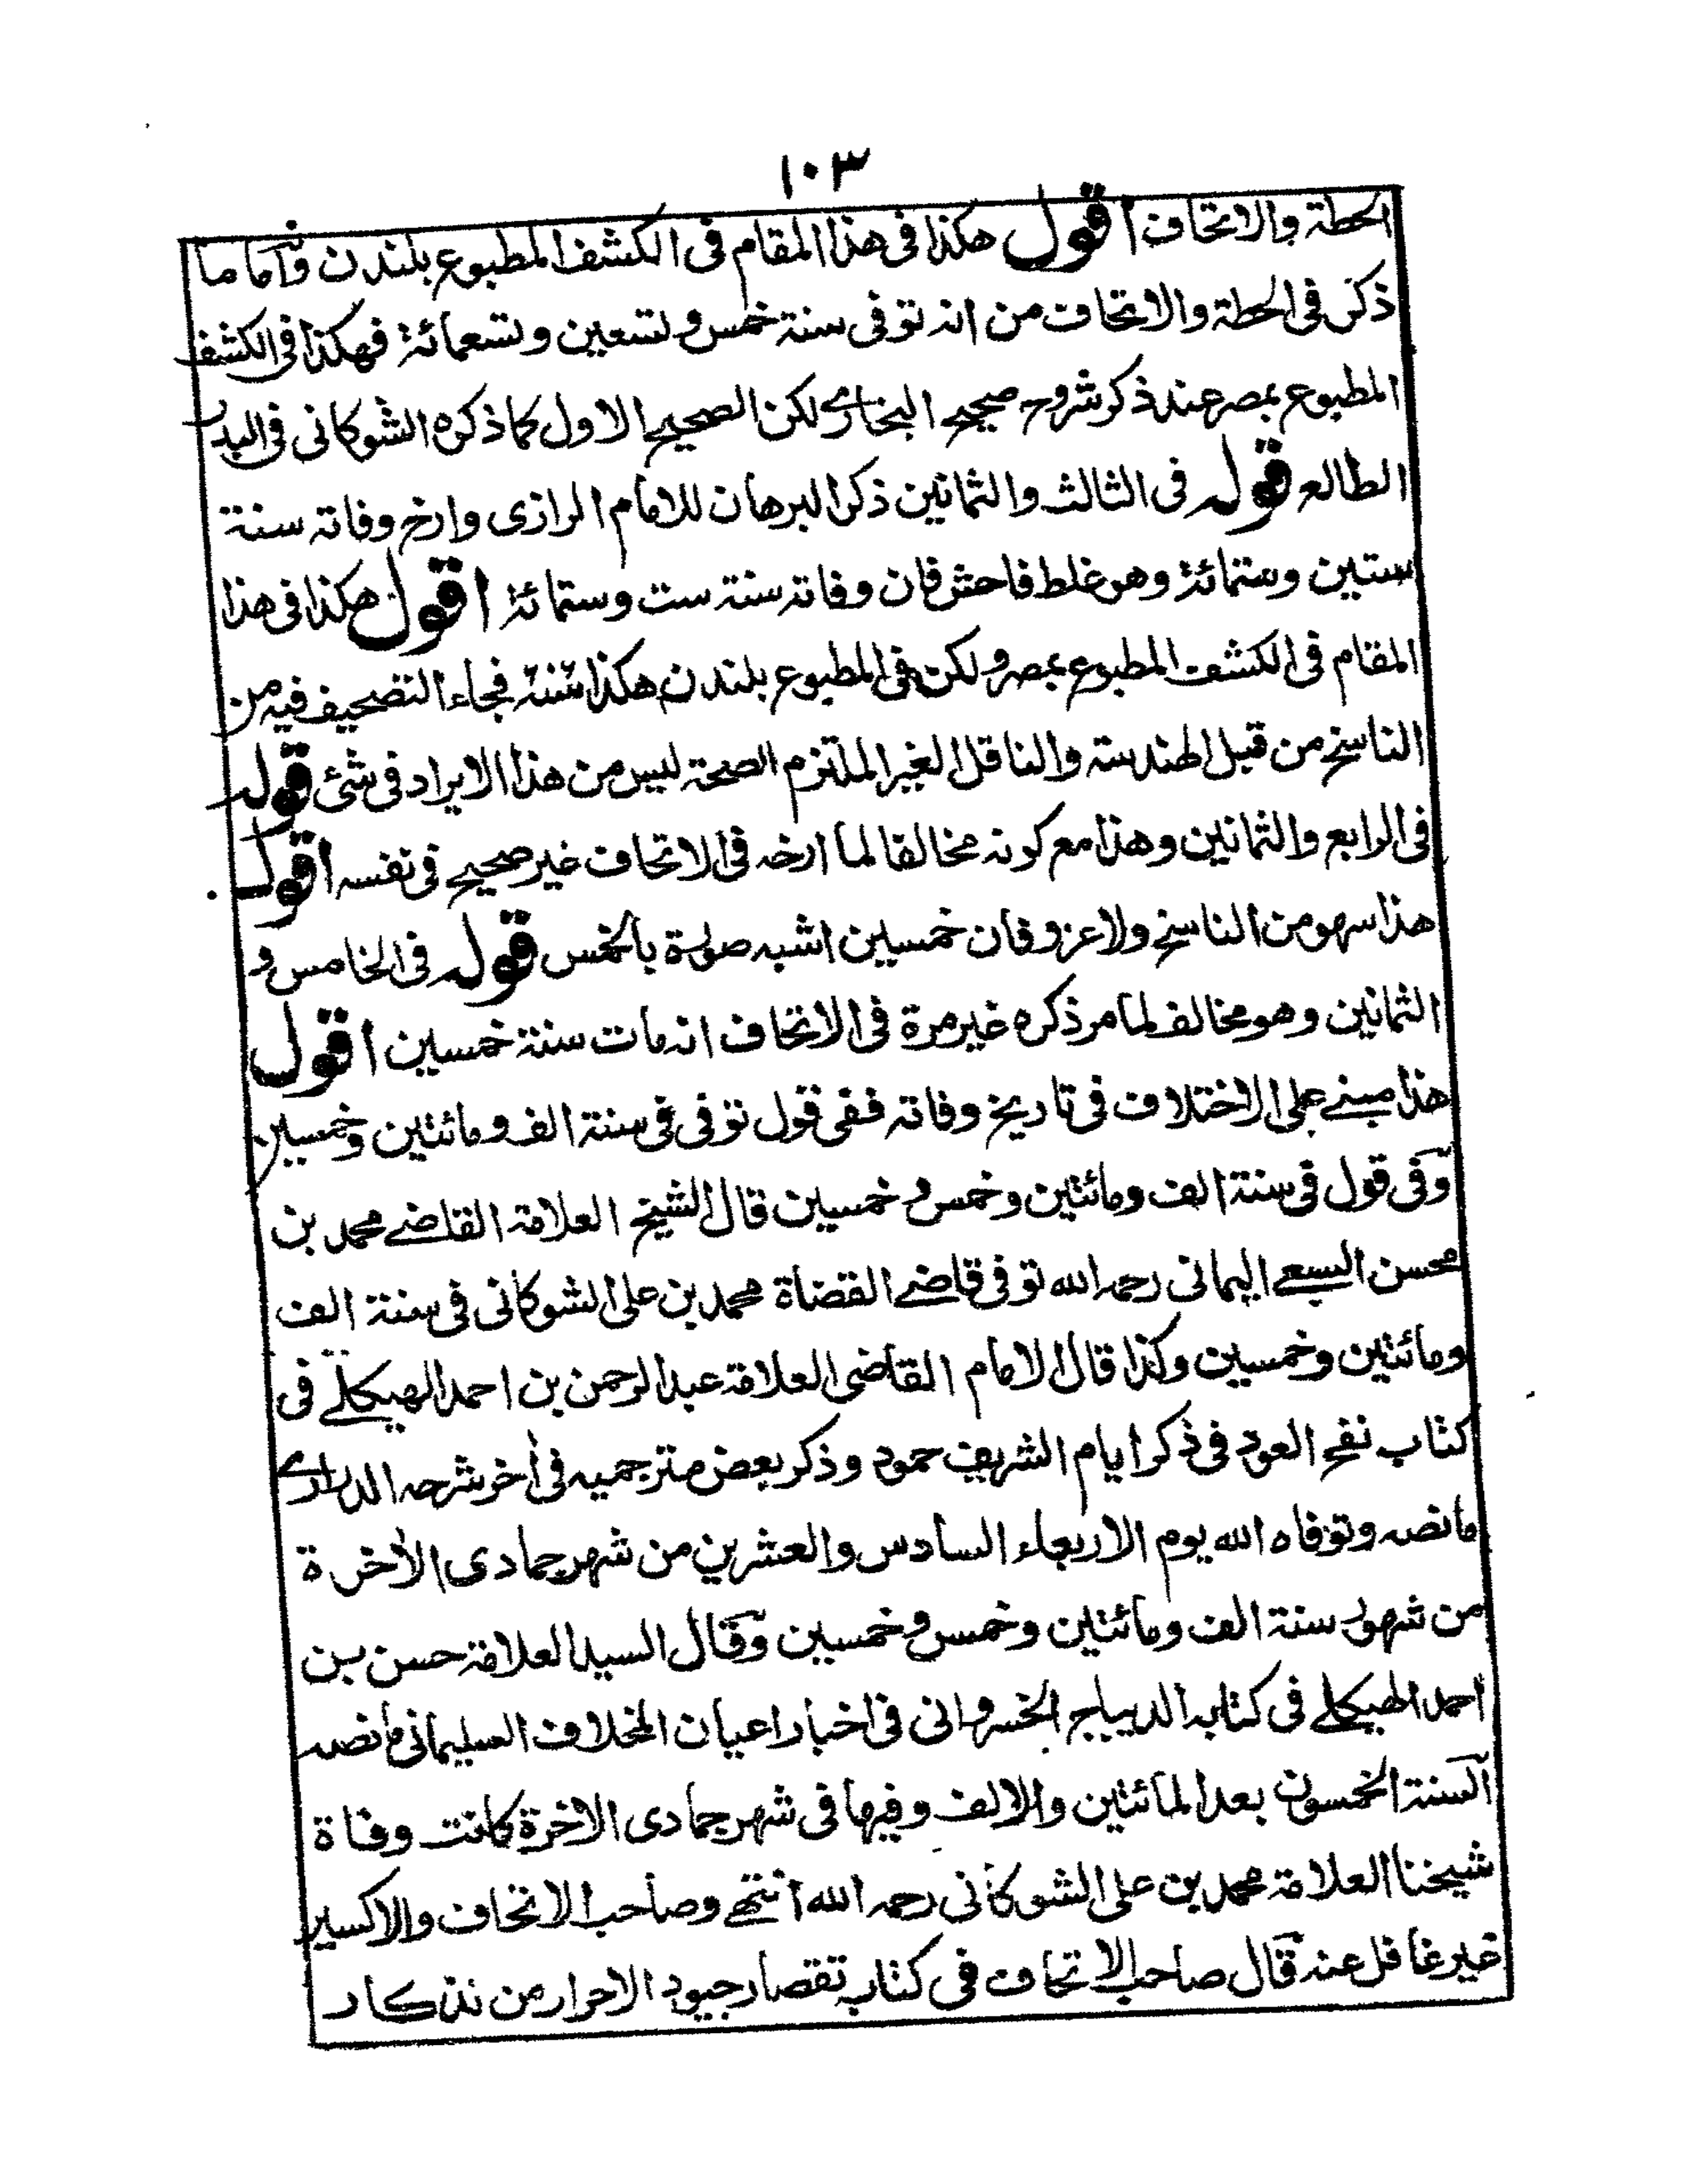 ١٠٣
الحطة والاتحاف اقول هكذا فى هذا المقام فى الكشف المطبوع بلندن وأما ما
ذكر فى الحطة والاتحاف من انه توفى سنة خمس وتسعين وتسعمائة فهكذا فى الكشف
المطبوع بمصر عند ذكر شروح صحيح البخارى لكن الصحيح الاول كما ذكره الشوكانى فى البدر
الطالع قوله فى الثالث والثمانين ذكر البرهان للامام الرازى وارخ وفاته سنة
ستين وستمائة وهو غلط فاحش فان وفاته سنة ست وستمائة اقول هكذا فى هذا
المقام فى الكشف المطبوع بمصر ولكن فى المطبوع بلندن هكذا سنة فجاء التصحيف فيه من
الناسخ من قبل الهندسة والناقل الغير الملتزم الصحة ليس من هذا الايراد فى شئ قوله
فى الرابع والثمانين وهذا مع كونه مخالفا لما ارخه فى الاتحاف غير صحيح فى نفسه اقول
هذا سهو من الناسخ ولا عزو فان خمسين اشبه صورة بالخمس قوله فى الخامس و
الثمانين وهو مخالف لما مر ذكره غير مرة فى الاتحاف انه مات سنة خمسين اقول
هذا مبنے على الاختلاف فى تاريخ وفاته ففى قول توفى فى سنة الف ومائتين وخمسين
وفى قول فى سنة الف ومائتين وخمس وخمسين قال الشيخ العلامة القاضے محمد بن
محسن السبعے اليمانى رحمه الله توفى قاضے القضاة محمد بن على الشوكانى فى سنة الف
ومائتين وخمسين وكذا قال الامام القاضى العلامة عبد الرحمن بن احمد البهيكلے فى
كتاب نفح العود فى ذكر ايام الشريف حمود وذكر بعض مترجميه فى أخر شرحه الدرارى
ما نصه وتوفاه الله يوم الاربعاء السادس والعشرين من شهر جمادى الأخرة
من شهور سنة الف ومائتين وخمس وخمسين وقال السيد العلامة حسن بن
احمد البهيكلے فى كتابه الديباج الخسروانى فى اخبار اعيان المخلاف السليمانى ما نصه
السنة الخمسون بعد المائتين والالف وفيها فى شهر جمادى الاخرة كانت وفاة
شيخنا العلامة محمد بن على الشوكانى رحمه الله انتهے وصاحب الاتحاف والاكسير
غير غافل عنه قال صاحب الاتحاف فى كتابه تقصار جيود الاحرار من تذكار